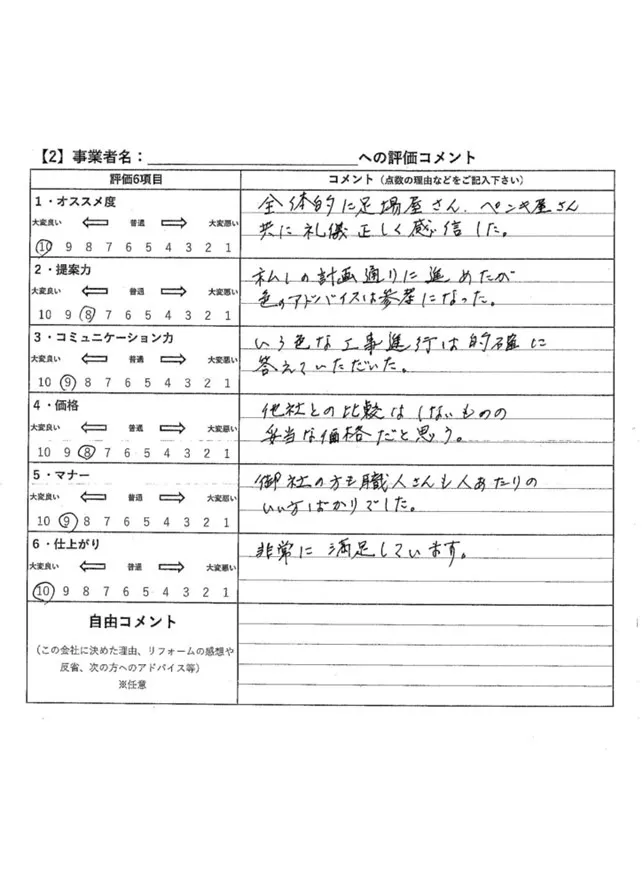 【2】事業者名：＿＿＿＿＿＿＿＿＿＿＿＿＿＿＿への評価コメント
評価6項目
コメント（点数の理由などをご記入下さい）
1・オススメ度
大変良い 普通 大変悪い
10 9 8 7 6 5 4 3 2 1
全体的に足場屋さん、ペンキ屋さん
共に礼儀正しく感心した。
2・提案力
大変良い 普通 大変悪い
10 9 8 7 6 5 4 3 2 1
私しの計画通りに進めたが
色のアドバイスは参考になった。
3・コミュニケーション力
大変良い 普通 大変悪い
10 9 8 7 6 5 4 3 2 1
いろ色な工事進行は的確に
答えていただいた。
4・価格
大変良い 普通 大変悪い
10 9 8 7 6 5 4 3 2 1
他社との比較はしないものの
妥当な価格だと思う。
5・マナー
大変良い 普通 大変悪い
10 9 8 7 6 5 4 3 2 1
御社の方も職人さんも人あたりの
いい方ばかりでした。
6・仕上がり
大変良い 普通 大変悪い
10 9 8 7 6 5 4 3 2 1
非常に満足しています。
自由コメント
（この会社に決めた理由、リフォームの感想や
反省、次の方へのアドバイス等）
※任意